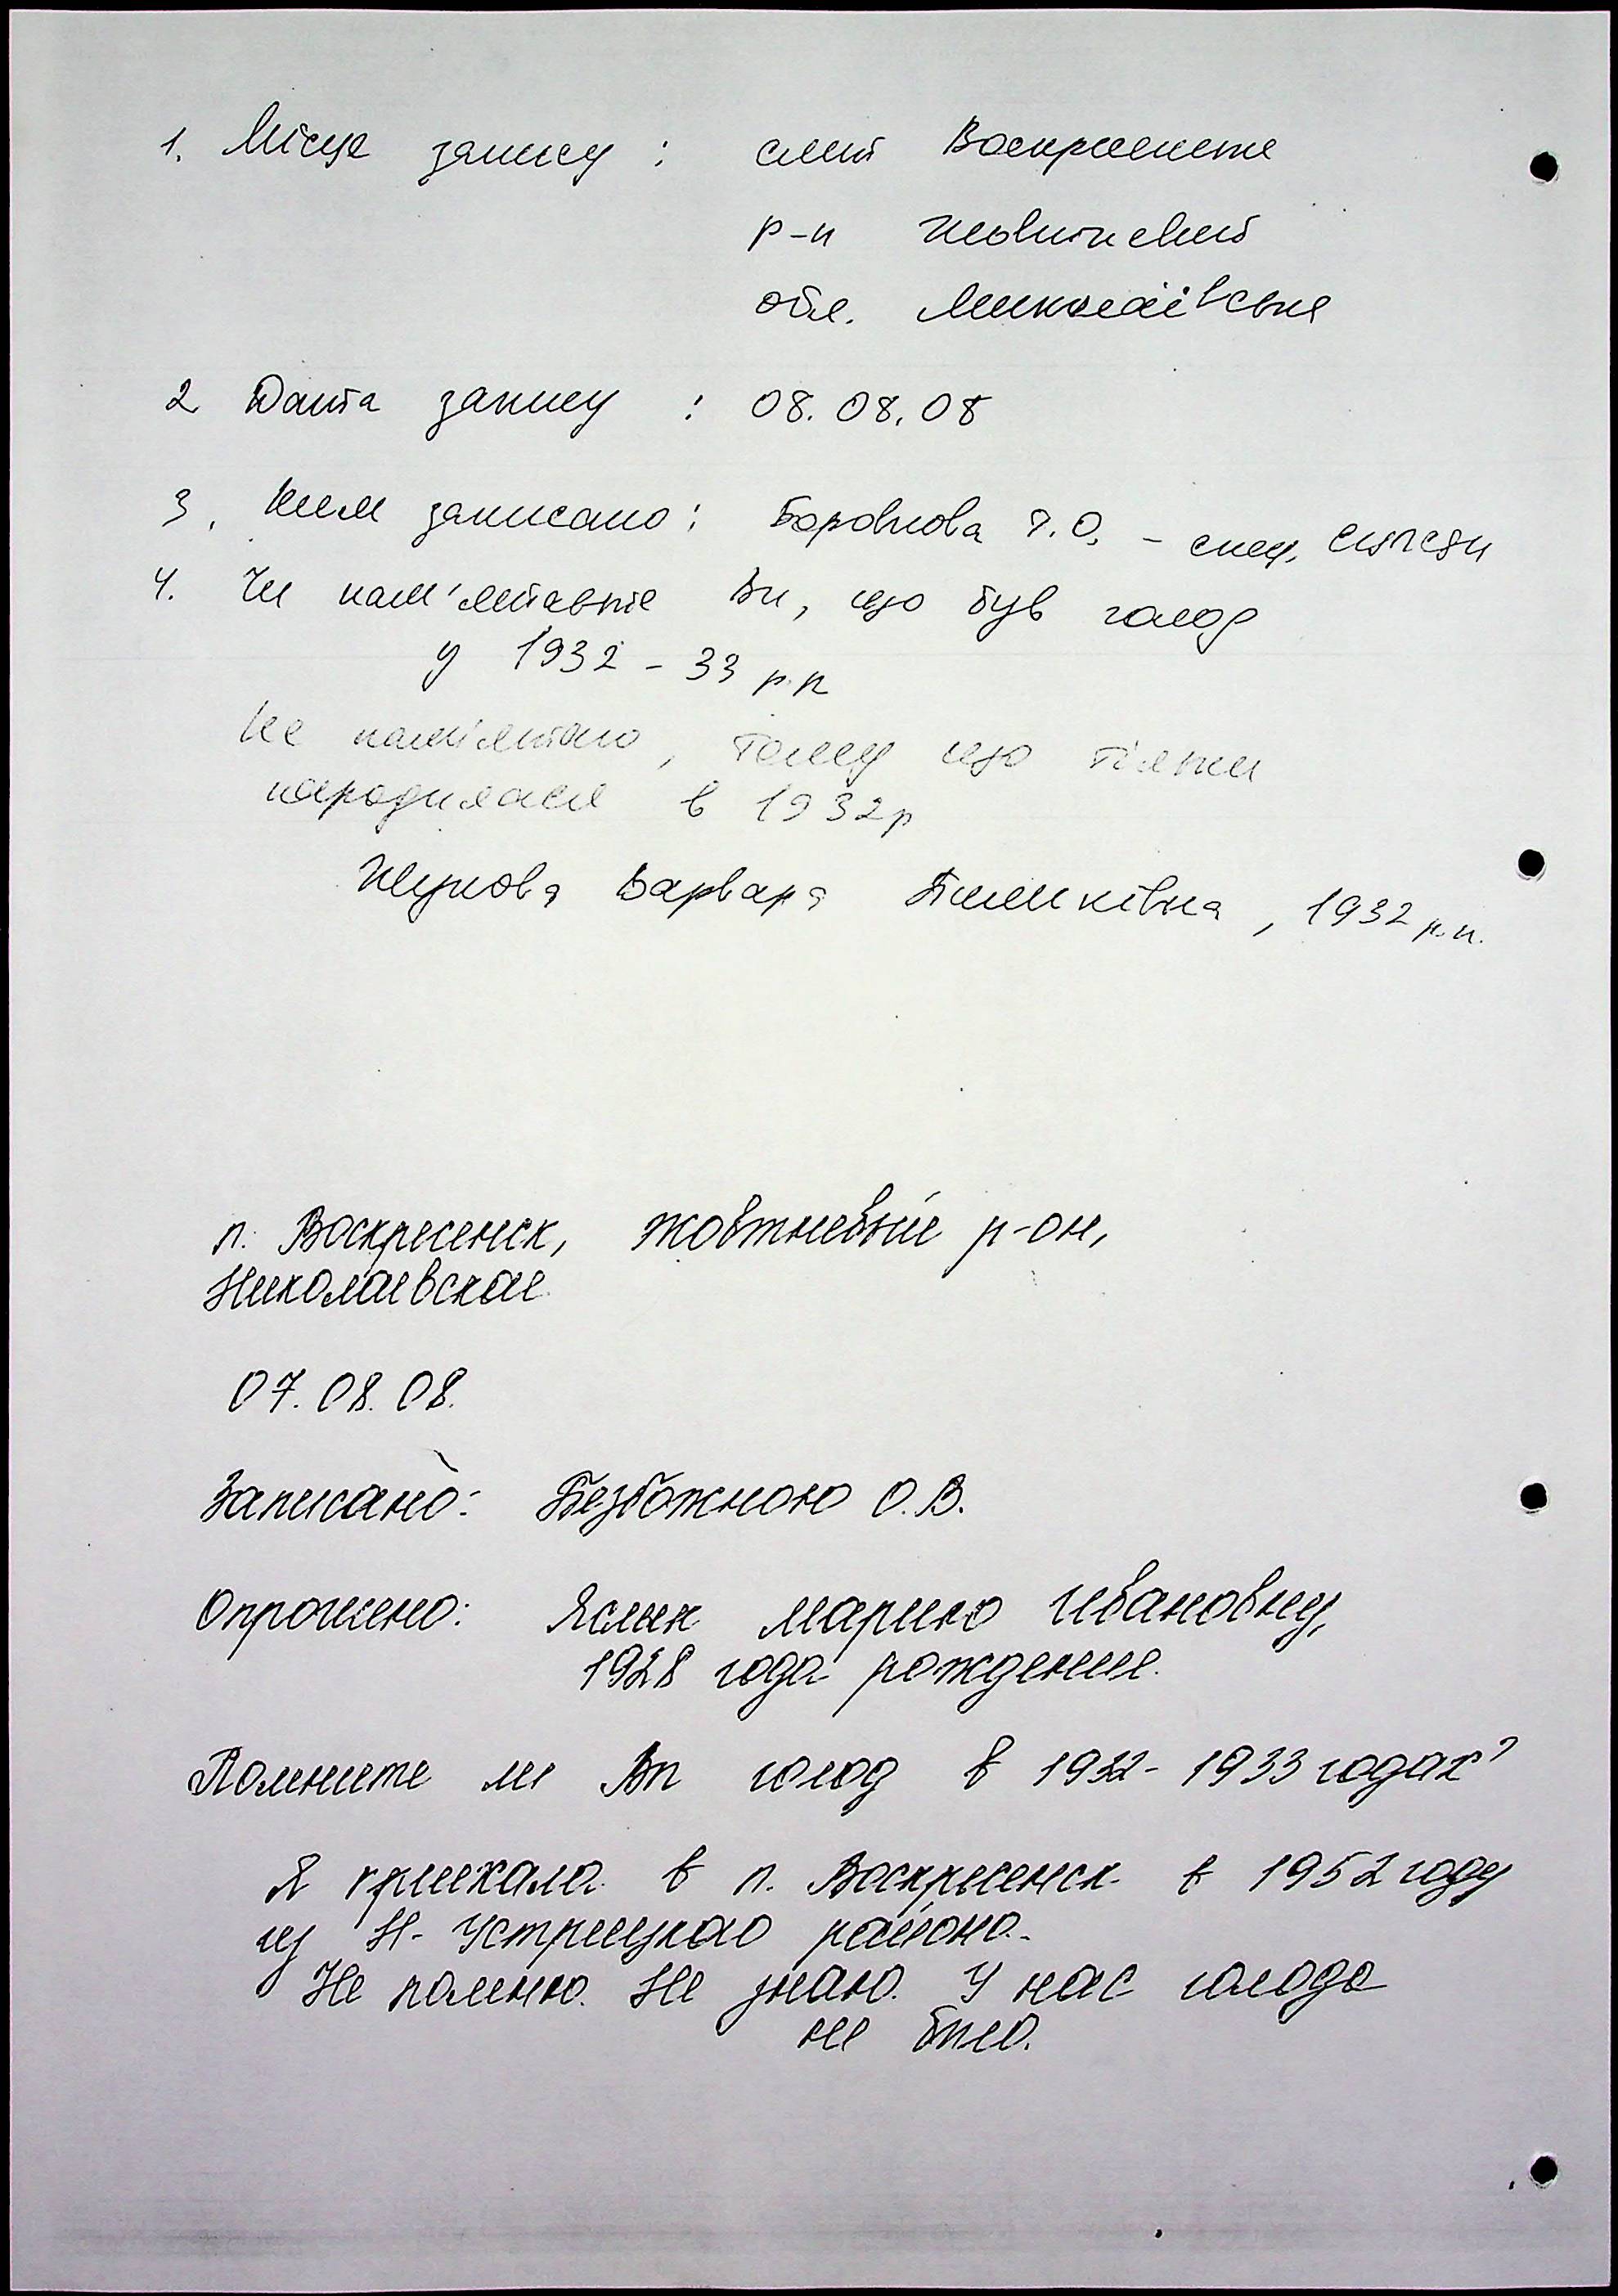 1. Місце запису : смт Воскресенське
р-н Жовтневий
обл. Миколаївська
2 Дата запису : 08.08.08
3. Ким записано: Боровкова Т.О. - спец. сільради
4. Чи пам'ятаєте Ви, що був голод
у 1932 - 33 р.р
Не пам'ятаю, тому що тільки
народилася в 1932р
Жукова Варвара, 1932 р.н.
п. Воскресенск, Жовтневый р-он,
Николаевская
07.08.08.
Записано: Безбожною О.В.
Опрошено: Марию Ивановну,
1928 года рождения.
Помните ли Вы голод в 1932-1933 годах?
Я приехала в п. Воскресенск в 1952 году
из района.
Не помню. Не знаю. У нас голода
не было.